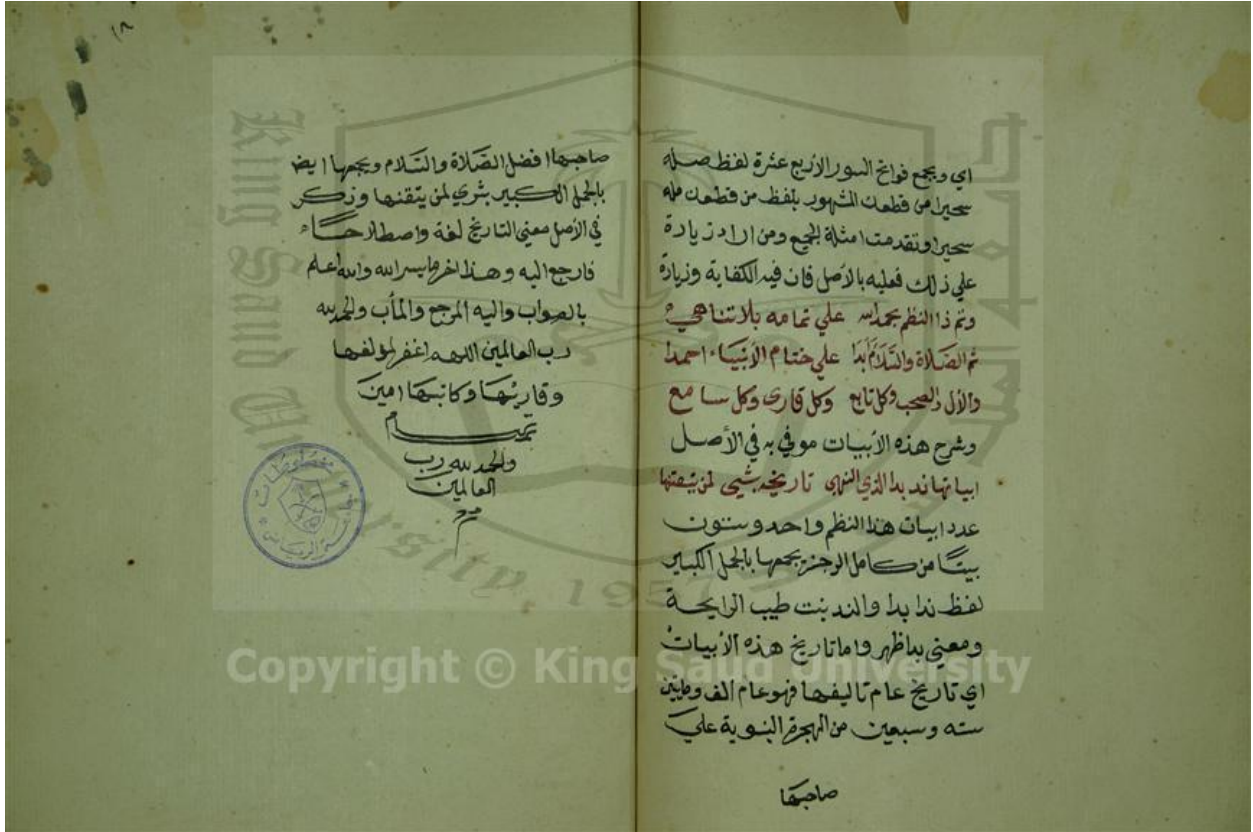 اي ويجمع فواتح السور الأربع عشرة لفظ صله
سحيرا من قطعك المشهور بلفظ من قطعك صله
سحيرا وتقدمت امثلة الجميع ومن اراد زيارة
علي ذلك فعليه بالأصل فان فيه الكفاية وزيارة
وتم ذا النظم بحمد الله علي تمامه بلا تناهي
ثم الصلاة والسلام بدا علي ختام الأنبياء احمدا
والأل والصحب وكل تابع وكل قاري وكل سامع
وشرح هذه الأبيات موفي به في الأصل
ابياتها ند بدا لذي النهى تاريخه بشرى لمن يتقنها
عدد ابيات هذا النظم واحد وستون
بيتا من كامل الرجز يجمعها بالجمل الكبير
لفظ ند بدا والند بنت طيب الرايحة
ومعني بدا ظهر واما تاريخ هذه الأبيات
اي تاريخ عام تاليفها فهو عام الف ومايتين
سته وسبعين من الهجرة النبوية علي
صاحبها
١٨
صاحبها افضل الصلاة والسلام ويجمعها ايض
بالجمل الكبير بشري لمن يتقنها وذكر
في الأصل معني التاريخ لغة واصطلاحاء
فارجع اليه وهذا اخر ما يسر الله والله اعلم
بالصواب واليه المرجع والمأب والحمد لله
رب العالمين اللهم اغفر لمؤلفها
وقاريها وكاتبها امين
تمام
والحمد لله رب
العالمين
م
King Saud University, 1957
جامعة الملك سعود
Copyright © King Saud University